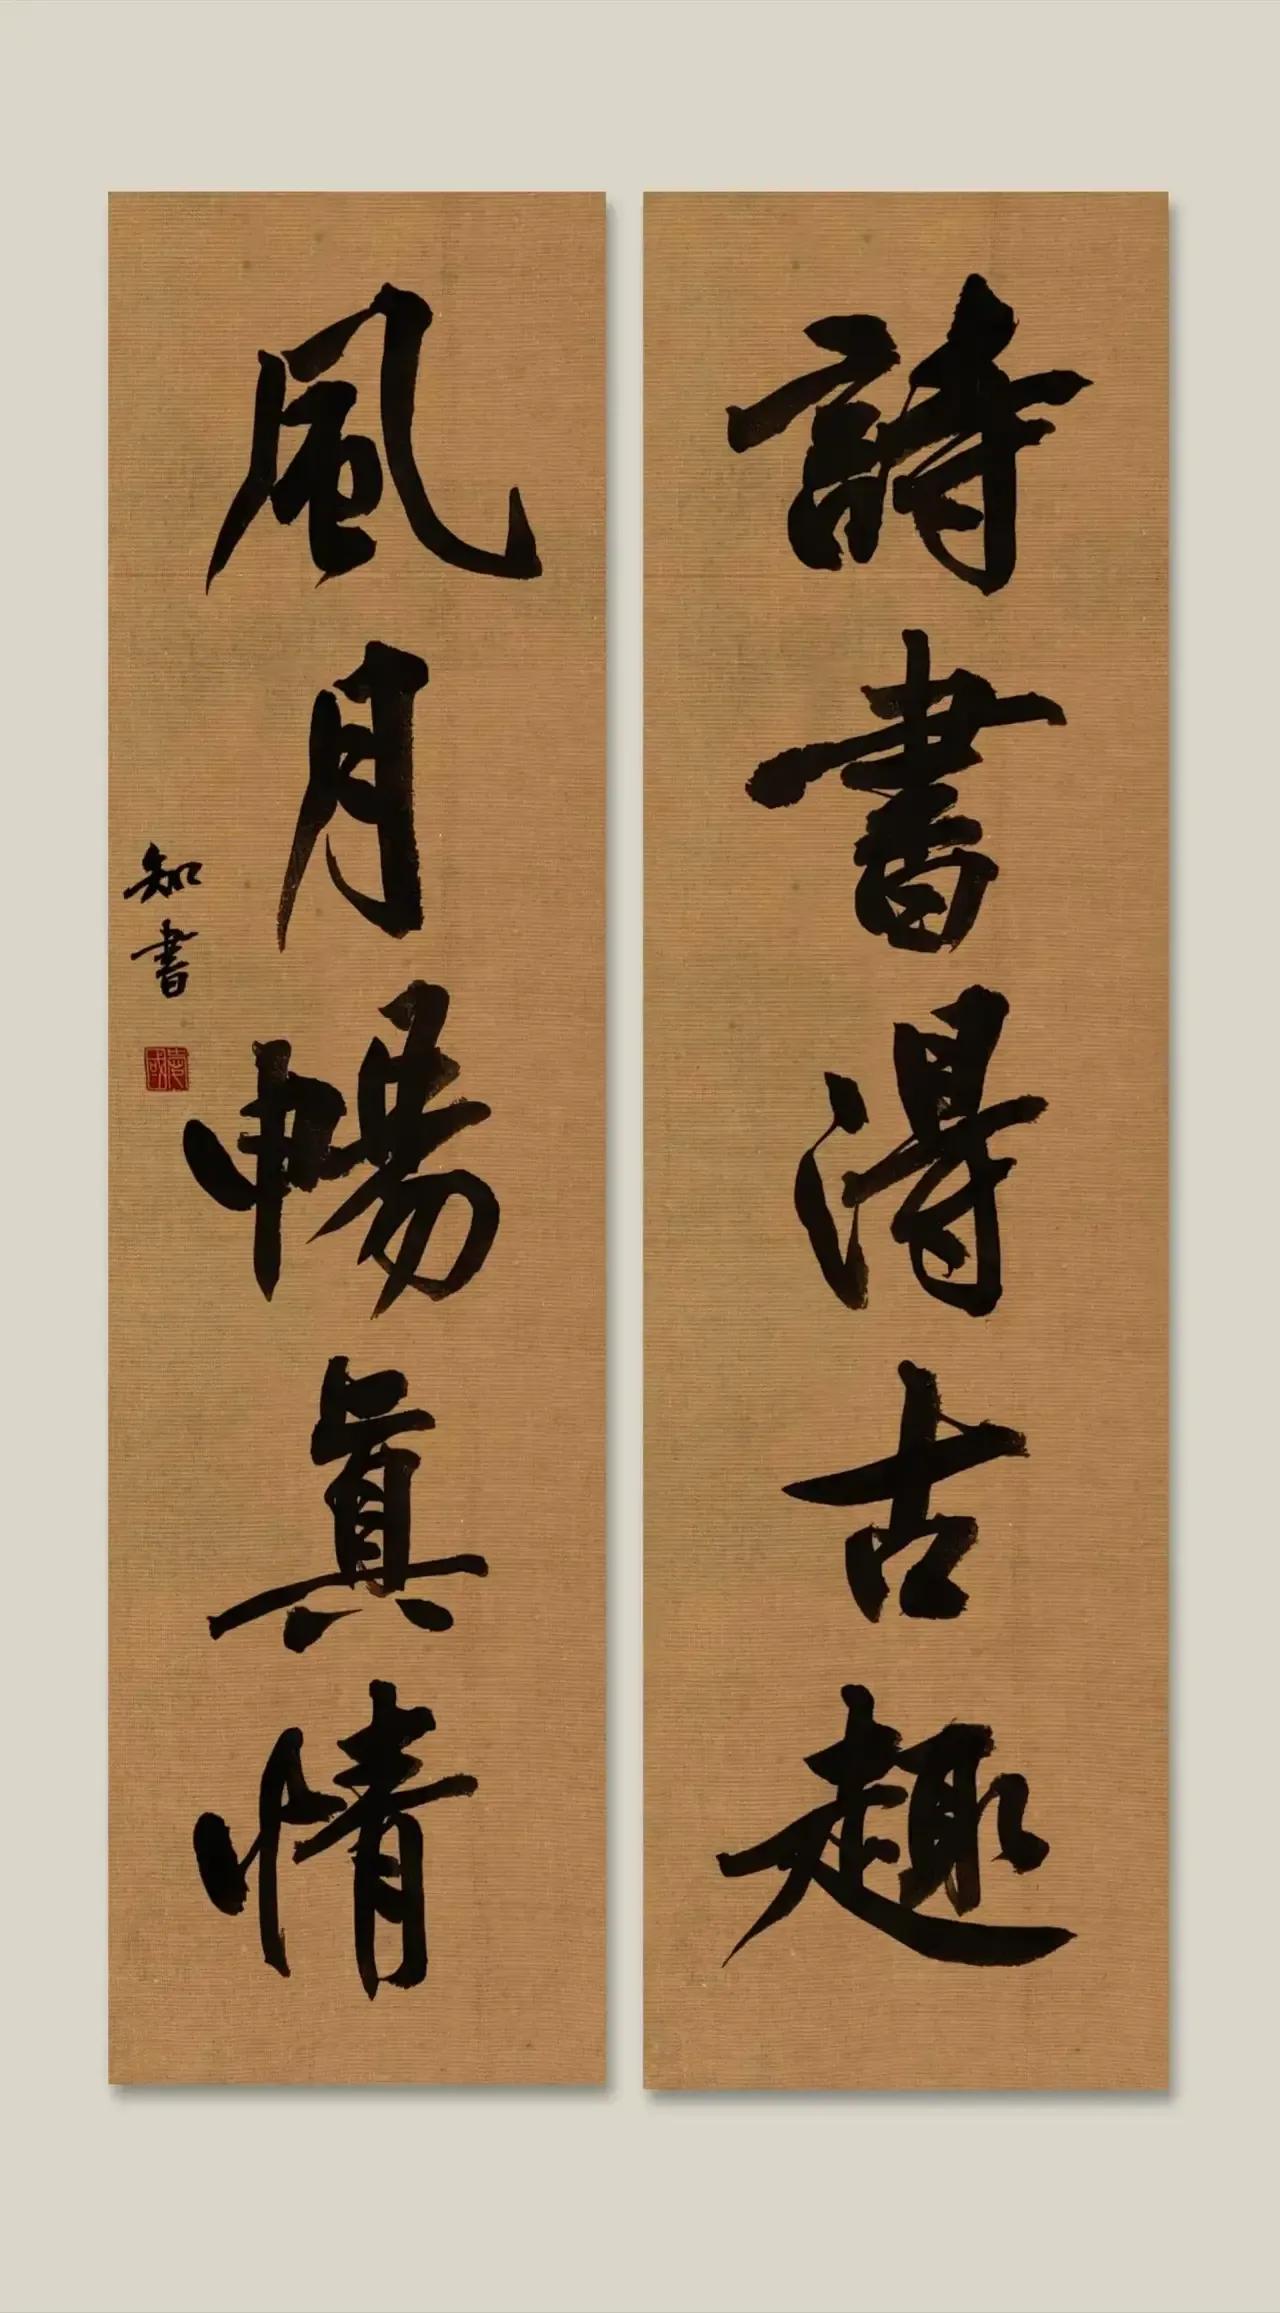 詩書得古趣
風月暢眞情
知書